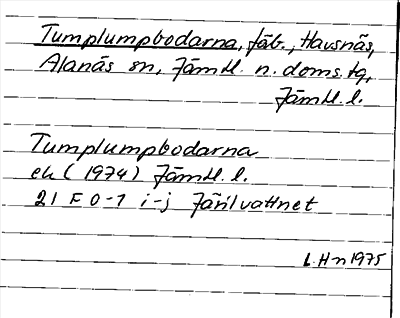 Tumplumpbodarna, fäb., Havsnäs,
Alanäs sn, Jämtl. n. doms. tg,
Jämtl. l.
Tumplumpbodarna
ek (1974) Jämtl. l.
21 F 0-1 i-j Järilvattnet
L. Hn 1975